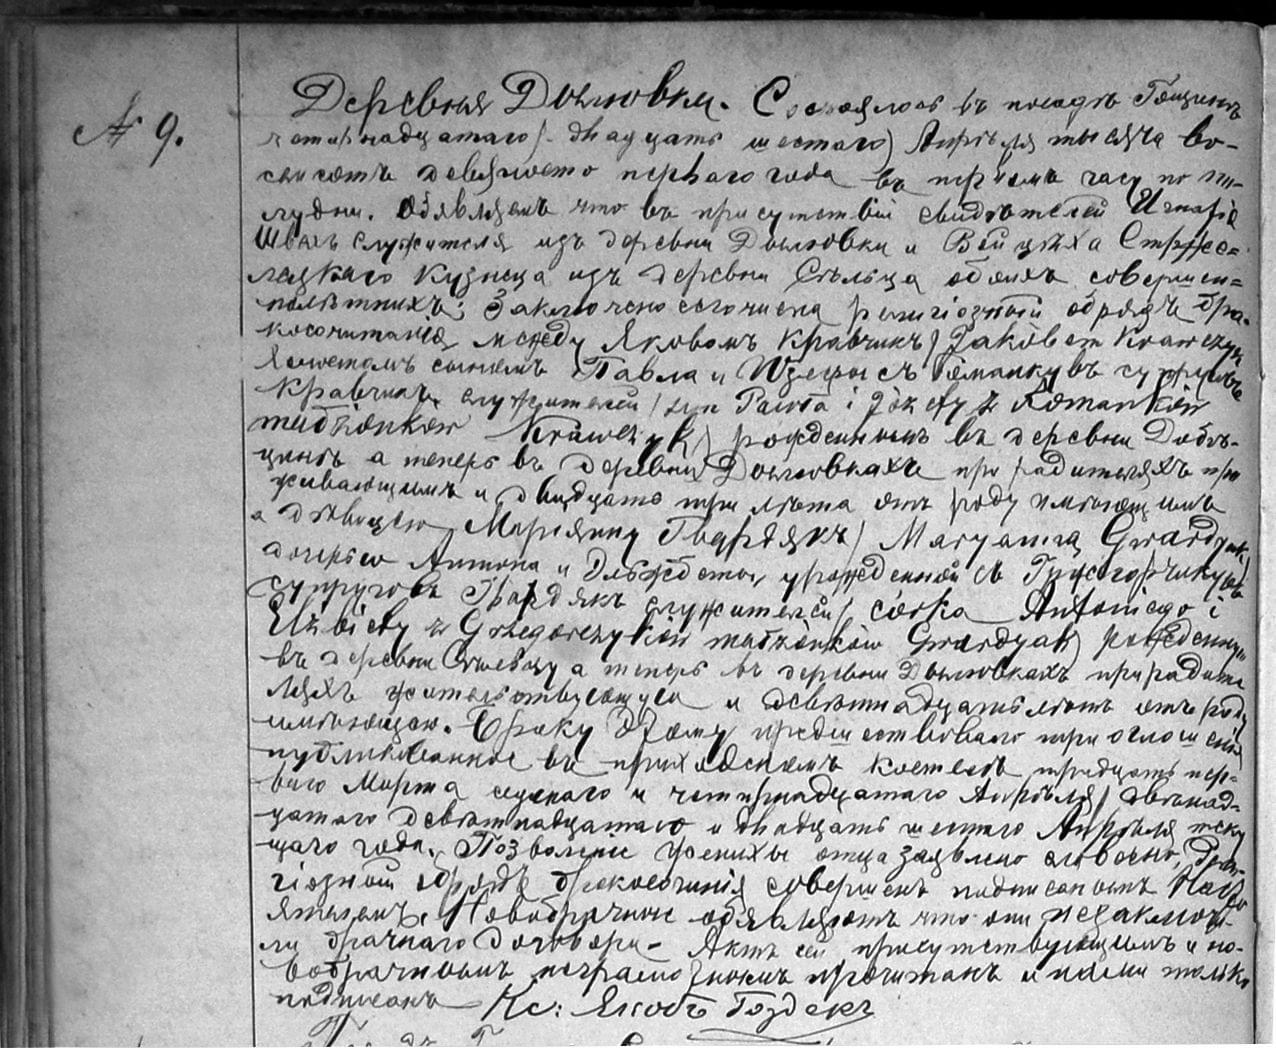 № 9.
Деревня Дылювки. Состоялось въ посадѣ Гощинъ
четырнадцатаго /двадцать шестого) Апрѣля тысяча во-
семсотъ девяносто перваго года въ первомъ часу по по-
лудни. Объявляемъ что въ присутствіи свидѣтелей Игнатія
Шваяъ служителя изъ деревни Дылювки и Войцѣха Стрже-
лецкаго кузнеца изъ деревни Сѣльца обоихъ совершен-
нолѣтнихъ; Заключено сегочисла религіозный обрядъ бра-
косочитанія между Яковомъ Кравчикъ / Jakóbem Krawczyk
холостомъ сыномъ Павла и Юзефы съ Романкувъ супруговъ
Кравчикъ служителей / syn Pawła i Józefy z Romanków
małżonków Krawczyk) рожденнымъ въ деревни
а теперъ въ деревни Дылювкахъ при родителяхъ про
живающимъ и двадцать три лѣта отъ роду имѣющимъ
а дѣвицею Маріянну Гвардякъ / Maryanną Gwardyak)
дочерью Антона и Эльжбеты, урожденной съ Гржегорчикувъ
супруговъ Гвардякъ служителей / córka Antoniego i
Elżbiety z Grzegorczyków małżonków Gwardyak) рожденную
въ деревни а теперъ въ деревни Дылювкахъ при родите
ляхъ жительствующую и девятнадцать лѣтъ отъ роду
имѣющою. Браку этому предшествовало три оглошенія
публикованное въ приходскомъ костелѣ тридцать пер-
ваго Марта сего и четырнадцатаго Апрѣля / двѣнад-
цатаго девятнадцатаго и двадцать шестого Апрѣля теку
щаго года. Позволеніе женихы отца заявлено словесно,
гіозной обрядъ бракосочетанія совершенъ подписанымъ
Новобрачные объявляютъ что они незаключи-
ли брачнаго договора- Актъ сей присутствующимъ и но-
вобрачнымъ неграмотнымъ прочитанъ и нами только
подписанъ Кс: Якобъ Гоздекъ